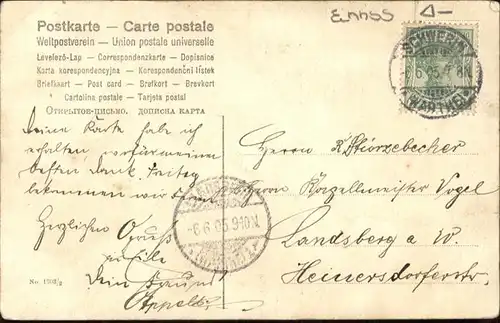 Postkarte – Carte postale
Weltpostverein – Union postale universelle
Levelező-Lap – Correspondenzkarte – Dopisnice
Karta korespondencyjna – Korespondenční lístek
Briefkaart – Post card – Brefkort – Brevkort
Cartolina postale – Tarjeta postal
Открытое-письмо, дописна карта
SCHWERIN
(WARTHE)
6.6.05.9-10N.
Deine Karte habe ich
erhalten, wofür meinen
besten Dank. Freitag
bekommen wir
Herzlichen Gruss
Dein Freund
Herrn R Störzebecher
Herrn Vogel
Landsberg a. W.
Heinersdorferstr.